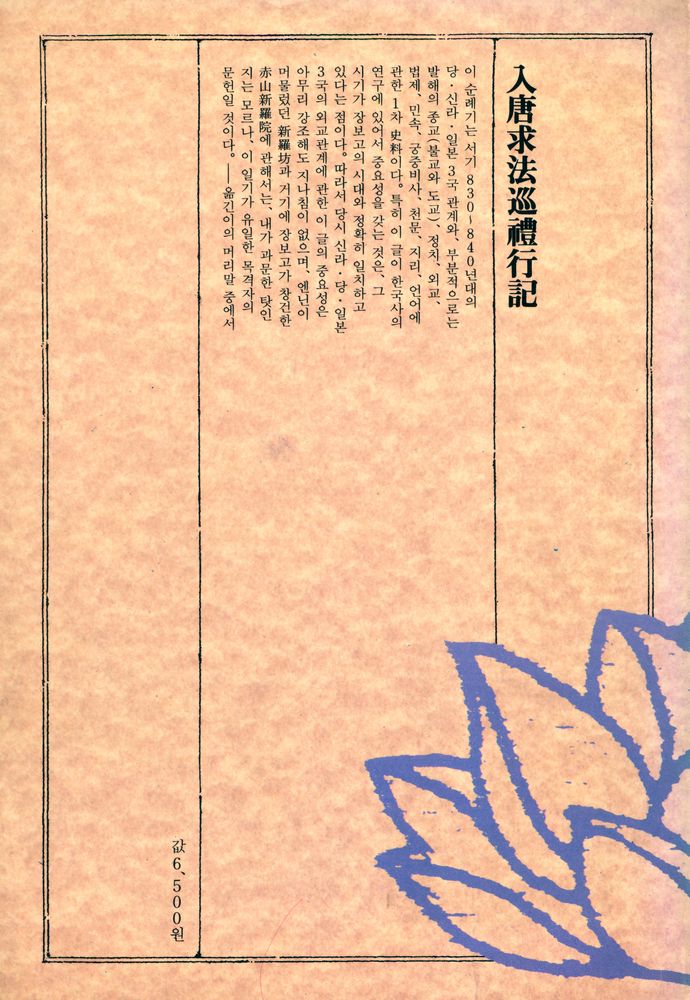 入唐求法巡禮行記
이 순례기는 서기 830~840년대의
당·신라·일본 3국 관계와, 부분적으로는
발해의 종교(불교와 도교), 정치, 외교,
법제, 민속, 궁중비사, 천문, 지리, 언어에
관한 1차 史料이다. 특히 이 글이 한국사의
연구에 있어서 중요성을 갖는 것은, 그
시기가 장보고의 시대와 정확히 일치하고
있다는 점이다. 따라서 당시 신라·당·일본
3국의 외교관계에 관한 이 글의 중요성은
아무리 강조해도 지나침이 없으며, 엔닌이
머물렀던 新羅坊과 거기에 장보고가 창건한
赤山新羅院에 관해서는, 내가 과문한 탓인
지는 모르나, 이 일기가 유일한 목격자의
문헌일 것이다. ──옮긴이의 머리말 중에서
값 6,500원